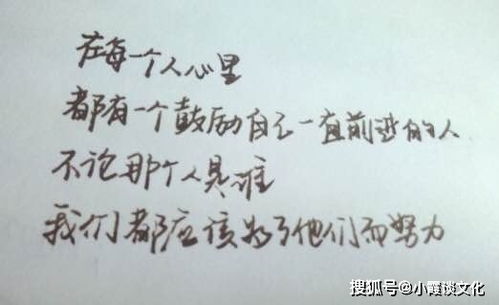 在每一个人心里
都有一个鼓励自己一直前进的人
不论那个人是谁
我们都应该为了他们而努力
搜狐号@小霞谈文化